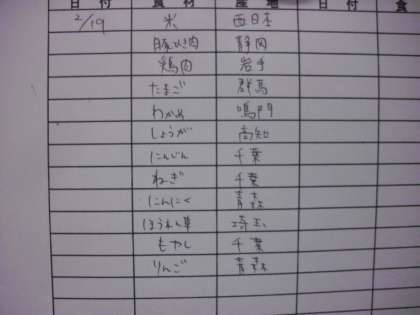 日付 食材 産地 日付 食
2/19 米 西日本
豚ひき肉 静岡
鶏肉 岩手
たまご 群馬
わかめ 鳴門
しょうが 高知
にんじん 千葉
ねぎ 千葉
にんにく 青森
ほうれん草 埼玉
もやし 千葉
りんご 青森